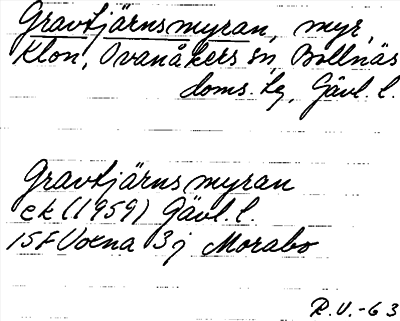 Gravtjärnsmyran, myr,
Klon, Ovanåkers sn, Bollnäs
doms. tg, Gävl. l.
Gravtjärnsmyran
ek (1959) Gävl. l.
15F Voxna 3j Morabo
R.V.-63